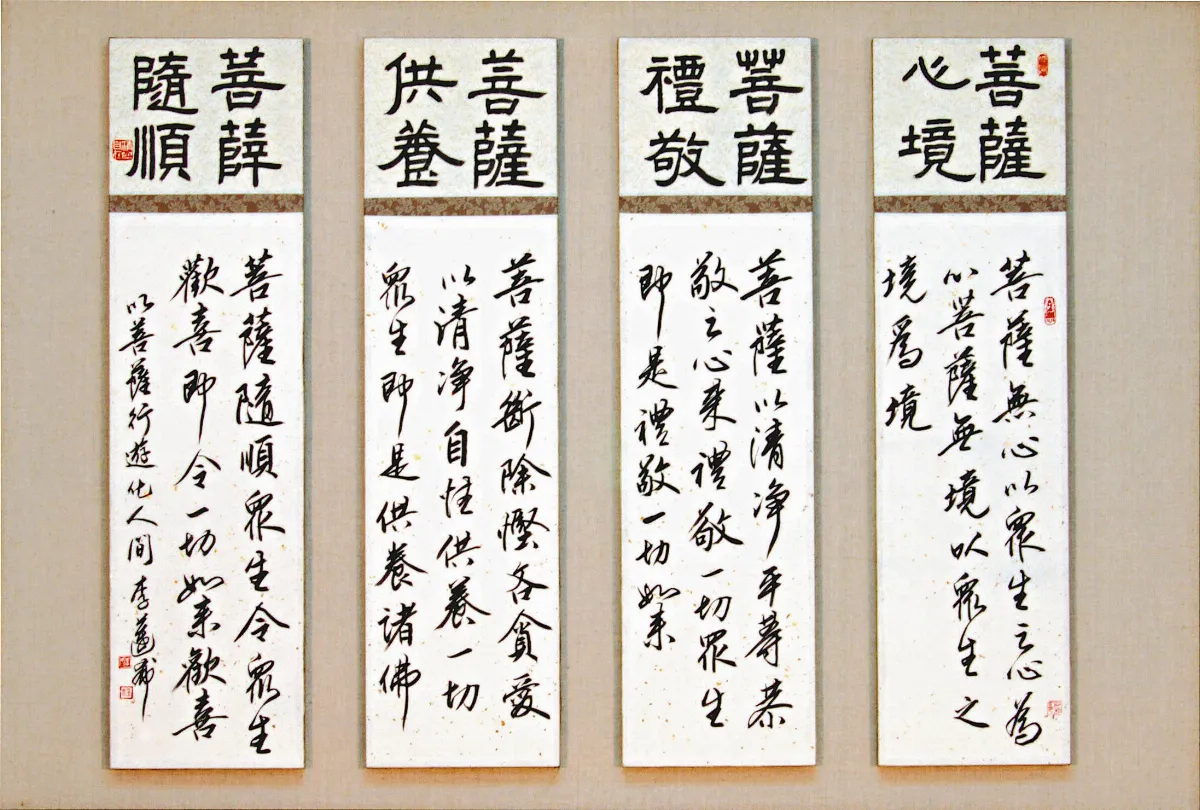 菩薩
心境
菩薩無心以眾生之心為
心菩薩無境以眾生之
境爲境
菩薩
禮敬
菩薩以清淨平等恭
敬之心來禮敬一切眾生
即是禮敬一切如來
菩薩
供養
菩薩斷除慳吝貪愛
以清淨自性供養一切
眾生即是供養諸佛
菩薩
隨順
菩薩隨順眾生令眾生
歡喜即令一切如來歡喜
以菩薩行遊化人間 李